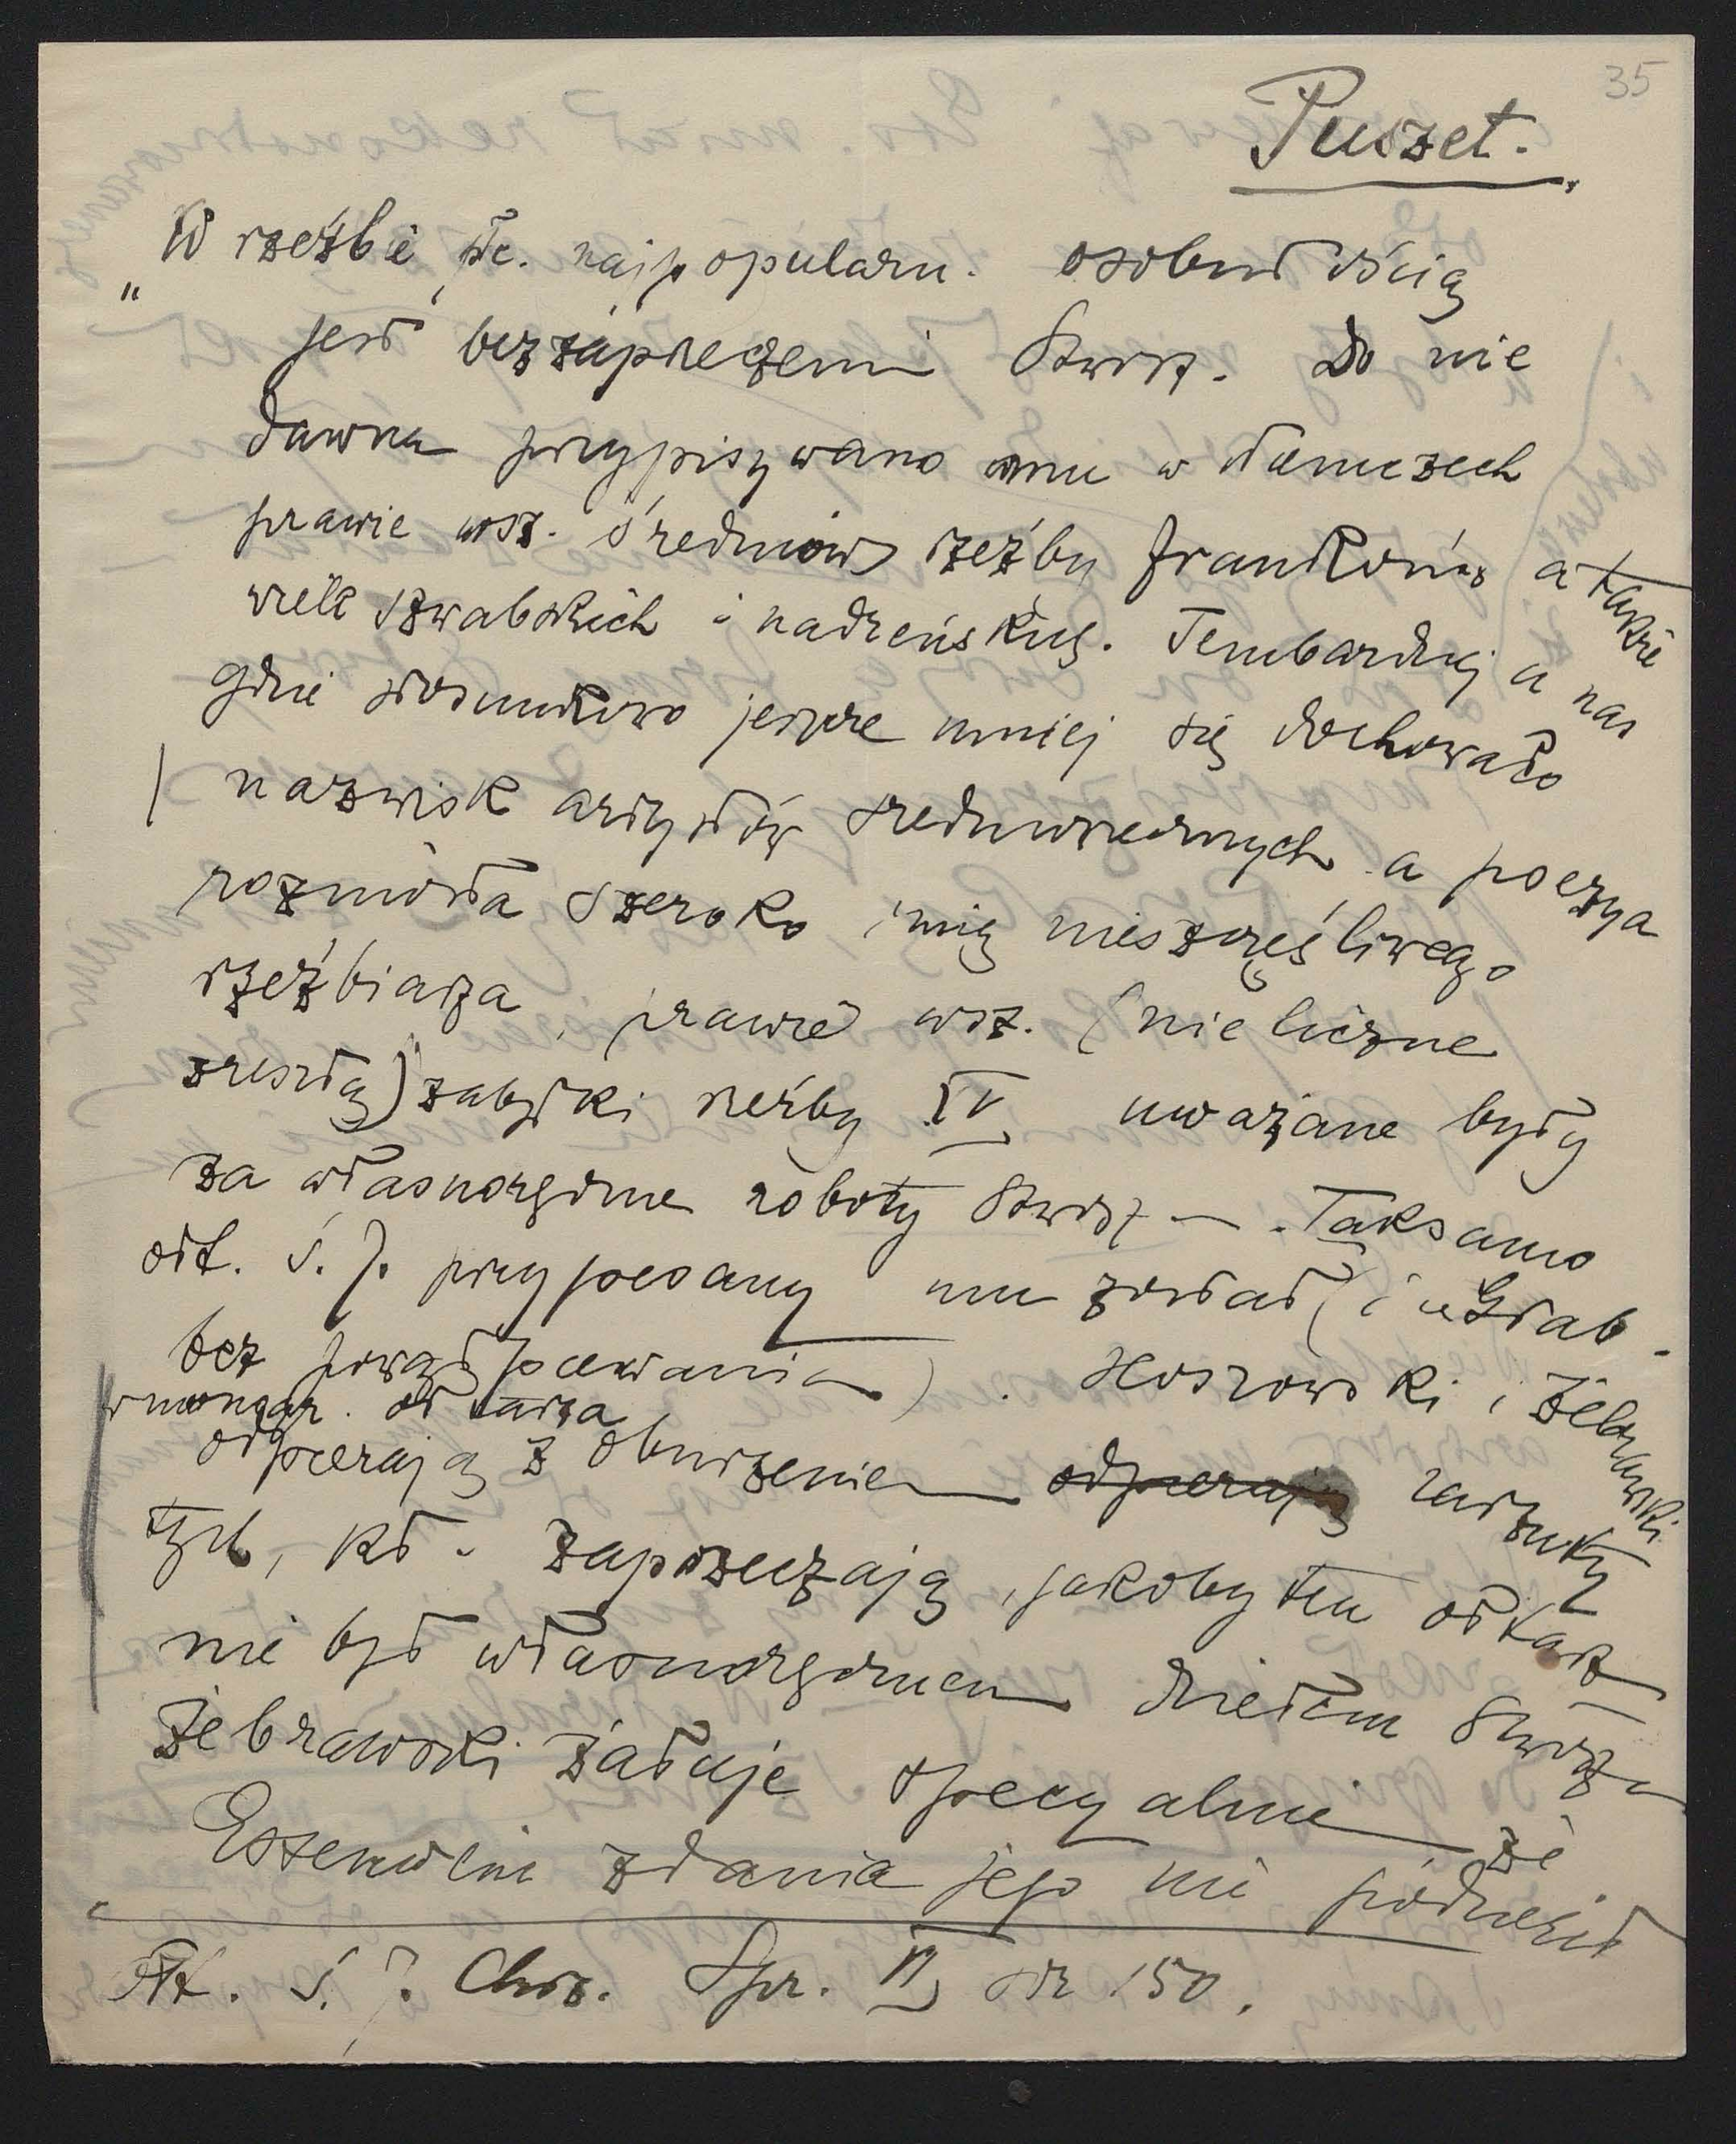 35
Puszet.
„W rzeźbie śr. najpopularn. osobistością
jest bezzaprzeczenia Stwosz. Do nie
dawna przypisywano mu w Niemczech
prawie wsz. średniow rzeźby Frankonis a także
wiele szwabskich i nadreńskich. Tembardziej u nas
gdzie stosunkowo jeszcze mniej się dochowało
nazwisk artystów średniowiecznych a poezya
rozniosła szeroko imię nieszczęśliwego
rzeźbiarza, prawie wsz. (nieliczne
zresztą) zabytki rzeźby XV uważane były
za własnoręczne roboty Stwosz — . Taksamo
ołt. ś. J. przypisany mu został (i u Grab.
bez powątpiewania) . Hoszowski i Żebrawski
w monogr. ołtarza
odpierają z oburzeniem odpierają zarzuty
tych, kt. zaprzeczają, jakoby ten ołtarz
nie był własnoręcznem dziełem Stwosza
Żebrawski żałuje specyalnie że
Essenwein zdania jego nie podzielił
Ołt. ś. J. Chrz. Spr. VI str 150.